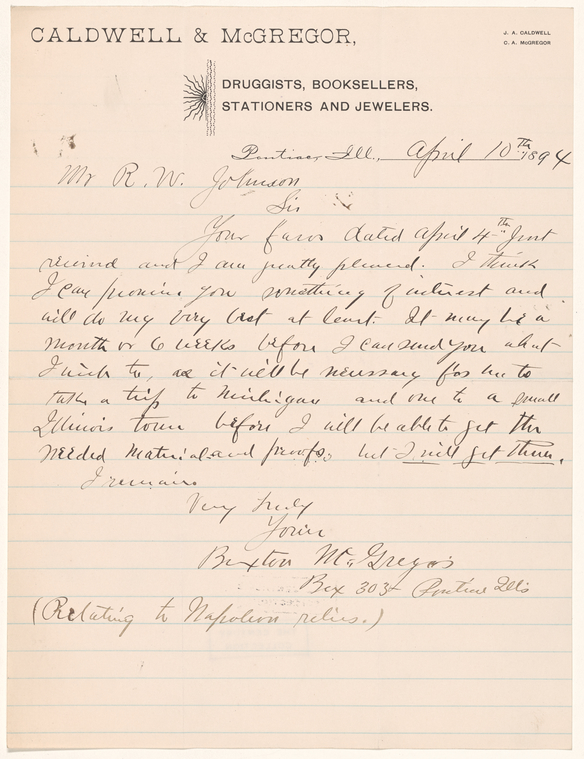 CALDWELL & McGREGOR,
J. A. CALDWELL
C. A. McGREGOR
DRUGGISTS, BOOKSELLERS,
STATIONERS AND JEWELERS.
Pontiac, Ill., April 10th 1894
Mr R. W. Johnson
Sir
Your favor dated April 4th just
received and I am greatly pleased. I think
I can promise you something of interest and
will do my very best at least. It may be a
month or 6 weeks before I can send you what
I wish to, as it will be necessary for me to
take a trip to Michigan and one to a small
Illinois town before I will be able to get the
needed material and proofs, but I will get them.
I remains
Very Truly
Yours
Buxton McGregor
Box 303 Pontiac Ills
(Relating to Napoleon relics.)